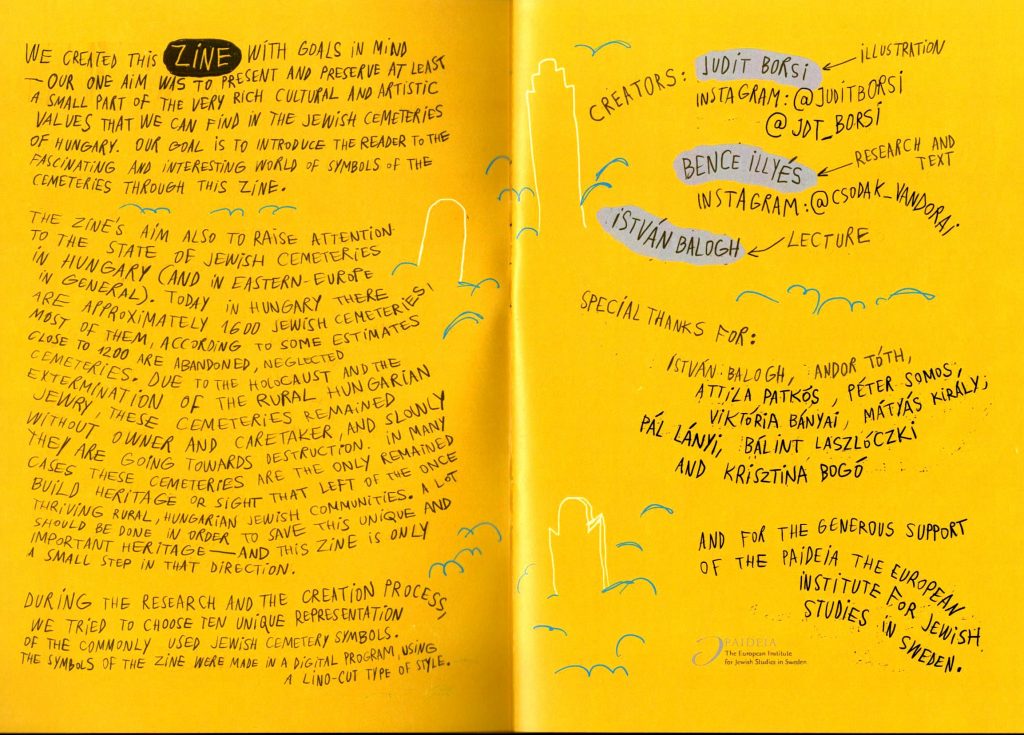 WE CREATED THIS ZINE WITH GOALS IN MIND
— OUR ONE AIM WAS TO PRESENT AND PRESERVE AT LEAST
A SMALL PART OF THE VERY RICH CULTURAL AND ARTISTIC
VALUES THAT WE CAN FIND IN THE JEWISH CEMETERIES
OF HUNGARY. OUR GOAL IS TO INTRODUCE THE READER TO THE
FASCINATING AND INTERESTING WORLD OF SYMBOLS OF THE
CEMETERIES THROUGH THIS ZINE.
THE ZINE'S AIM ALSO TO RAISE ATTENTION
TO THE STATE OF JEWISH CEMETERIES
IN HUNGARY (AND IN EASTERN-EUROPE
IN GENERAL). TODAY IN HUNGARY THERE
ARE APPROXIMATELY 1600 JEWISH CEMETERIES,
MOST OF THEM, ACCORDING TO SOME ESTIMATES
CLOSE TO 1200 ARE ABANDONED, NEGLECTED
CEMETERIES. DUE TO THE HOLOCAUST AND THE
EXTERMINATION OF THE RURAL HUNGARIAN
JEWRY, THESE CEMETERIES REMAINED
WITHOUT OWNER AND CARETAKER, AND SLOWLY
THEY ARE GOING TOWARDS DESTRUCTION. IN MANY
CASES THESE CEMETERIES ARE THE ONLY REMAINED
BUILD HERITAGE OR SIGHT THAT LEFT OF THE ONCE
THRIVING RURAL, HUNGARIAN JEWISH COMMUNITIES. A LOT
SHOULD BE DONE IN ORDER TO SAVE THIS UNIQUE AND
IMPORTANT HERITAGE — AND THIS ZINE IS ONLY
A SMALL STEP IN THAT DIRECTION.
DURING THE RESEARCH AND THE CREATION PROCESS,
WE TRIED TO CHOOSE TEN UNIQUE REPRESENTATION
OF THE COMMONLY USED JEWISH CEMETERY SYMBOLS.
THE SYMBOLS OF THE ZINE WERE MADE IN A DIGITAL PROGRAM, USING
A LINO-CUT TYPE OF STYLE.
CREATORS: JUDIT BORSI ILLUSTRATION
INSTAGRAM: @JUDITBORSI
@JDT_BORSI
BENCE ILLYÉS RESEARCH AND
TEXT
INSTAGRAM: @CSODAK_VANDORAI
ISTVÁN BALOGH LECTURE
SPECIAL THANKS FOR:
ISTVÁN BALOGH, ANDOR TÓTH,
ATTILA PATKÓS, PÉTER SOMOS,
VIKTÓRIA BÁNYAI, MÁTYÁS KIRÁLY,
PÁL LÁNYI, BÁLINT LASZLÓCZKI
AND KRISZTINA BOGÓ
AND FOR THE GENEROUS SUPPORT
OF THE PAIDEIA THE EUROPEAN
INSTITUTE FOR JEWISH
STUDIES IN SWEDEN.
PAIDEIA
The European Institute
for Jewish Studies in Sweden